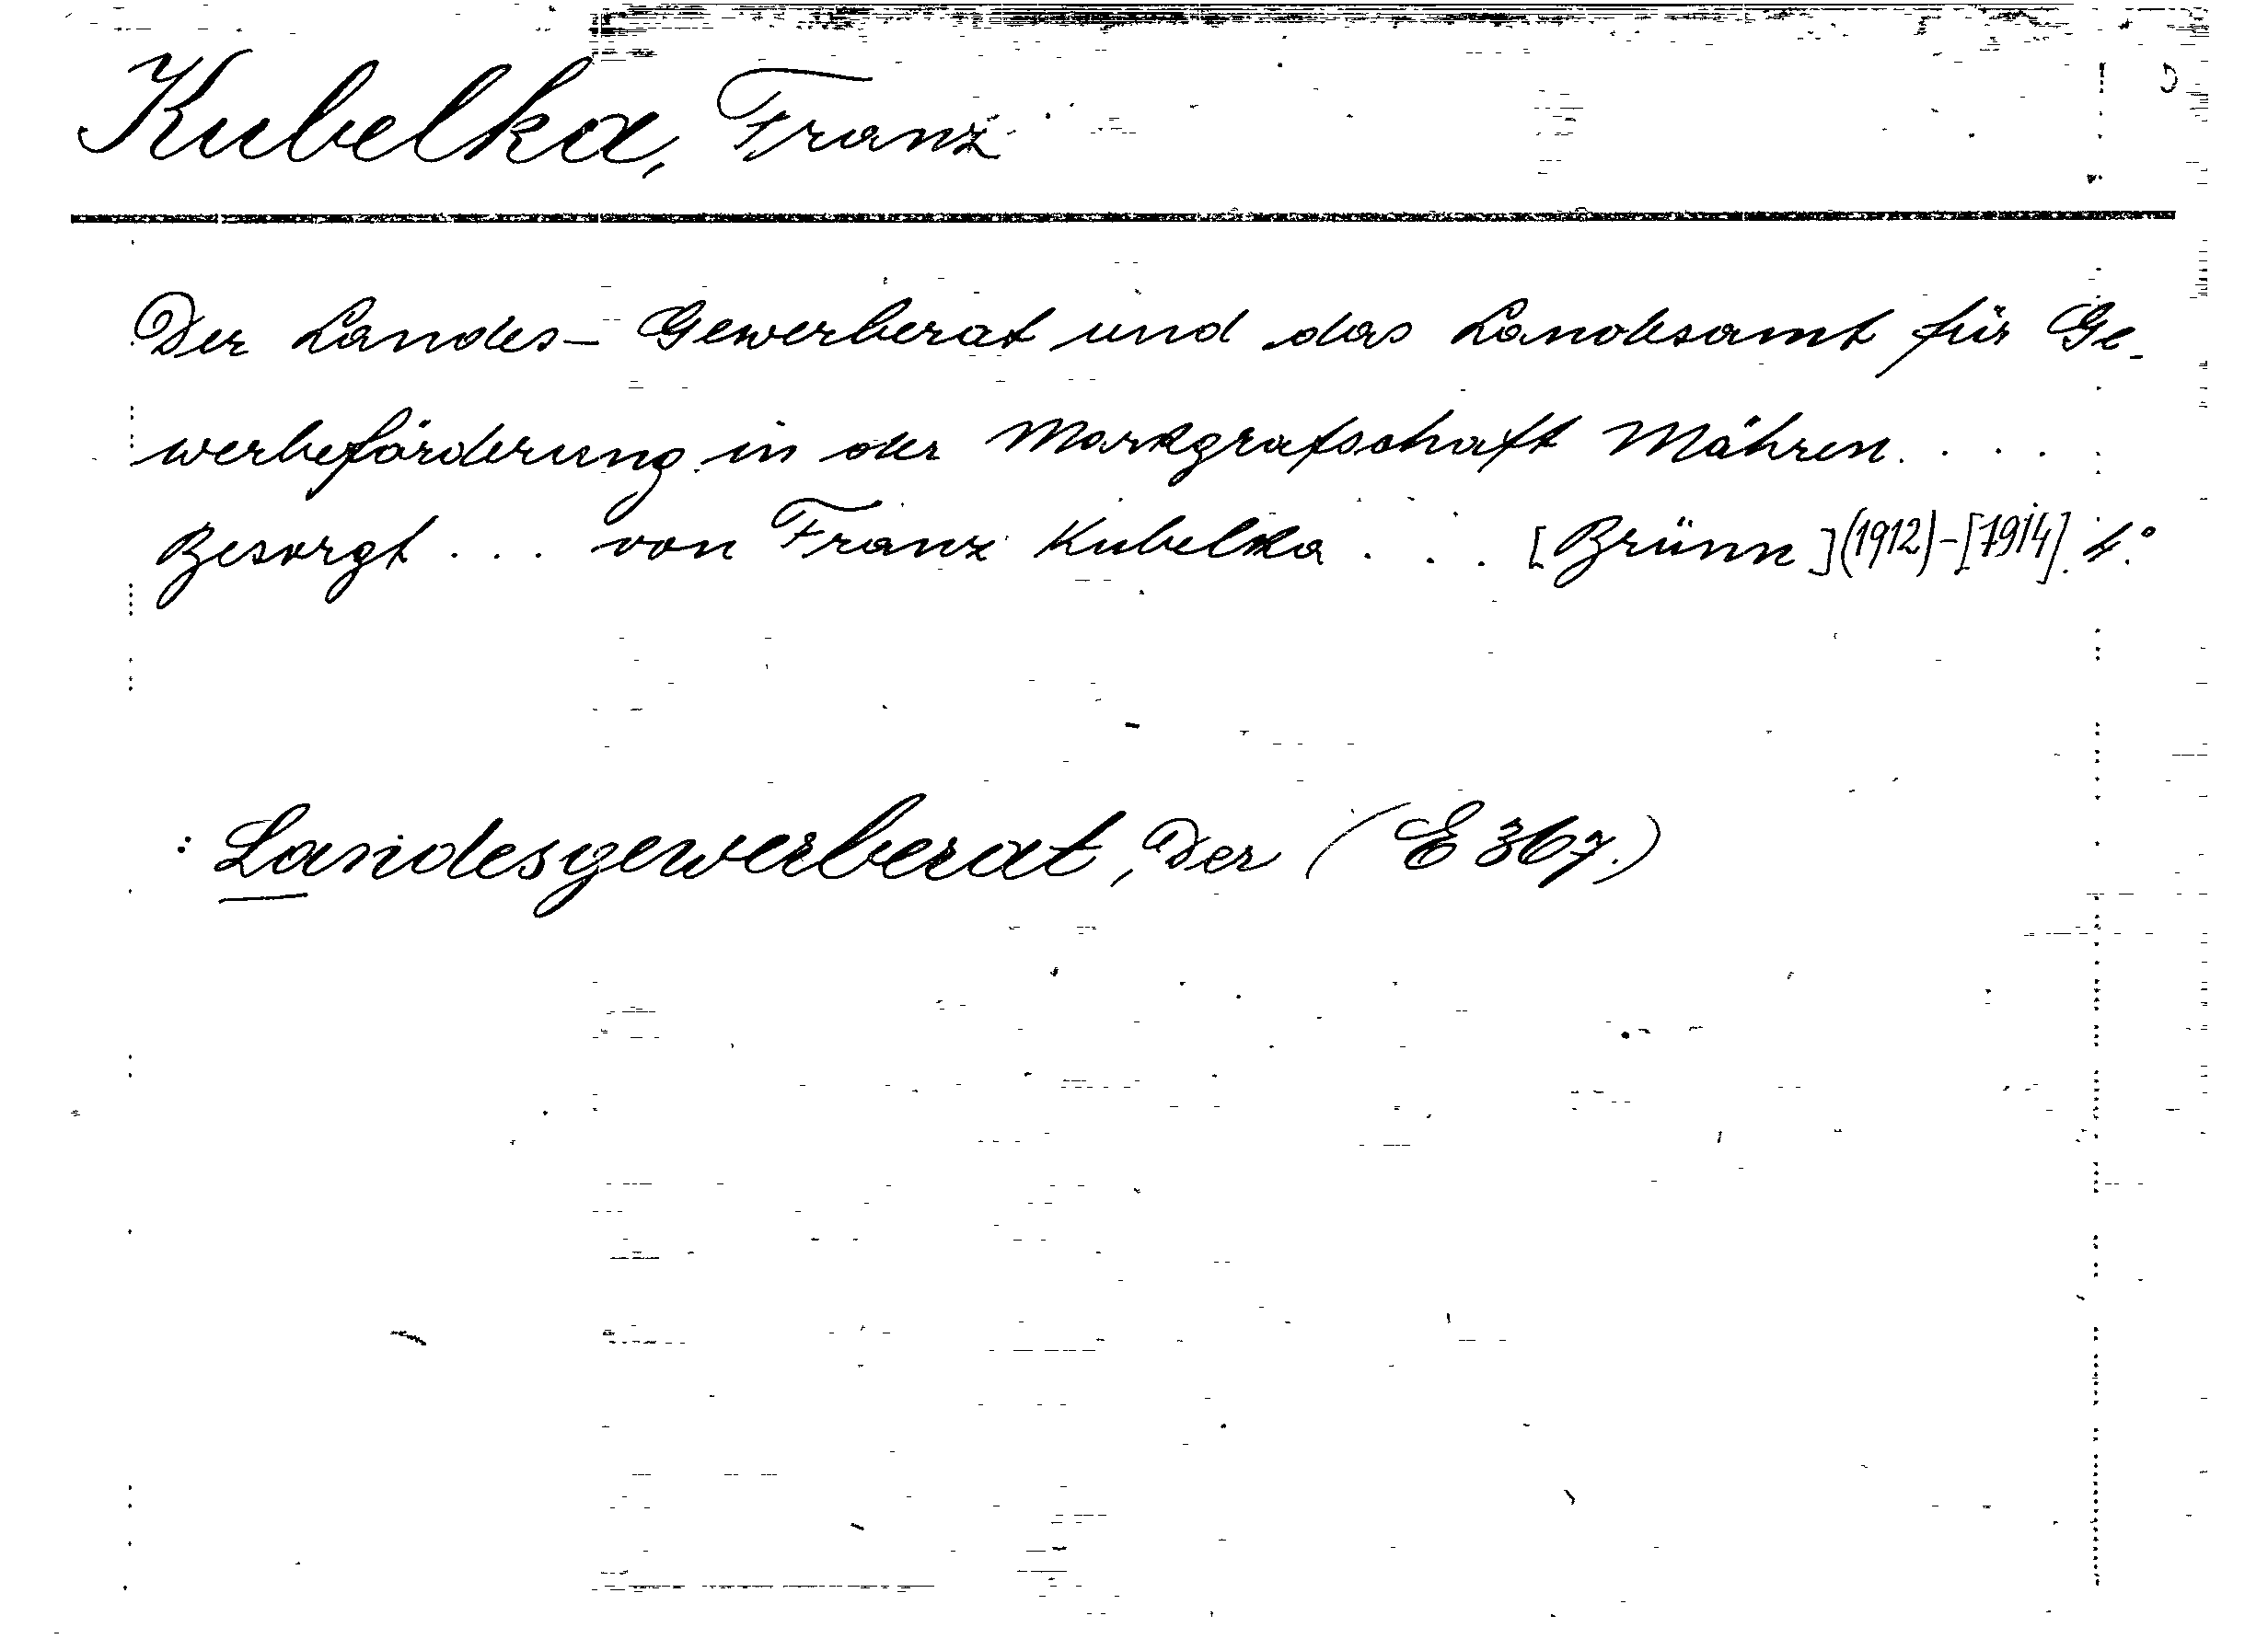 Kubelka, Franz
Der Landes- Gewerberat und das Landesamt für Ge-
werbeförderung in der Markgrafschaft Mähren. . . .
Besorgt . . . von Franz Kubelka . . . [Brünn] (1912)-[1914]. 4.°
: Landesgewerberat, Der (E 367.)